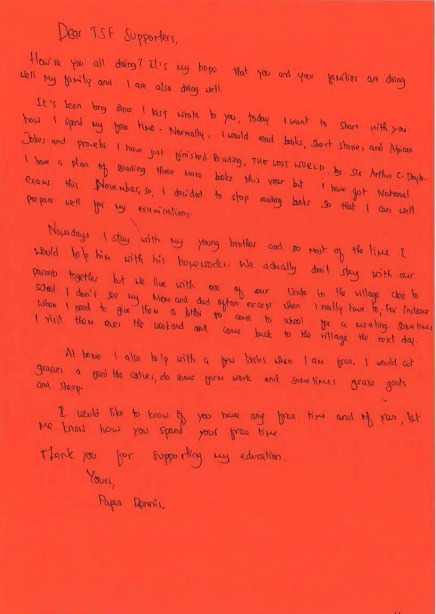 Dear TSF Supporters,
How're you all doing? It's my hope that you and your families are doing
well my family and I are also doing well.
It's been long since I last wrote to you, today I want to share with you
how I spend my free time. Normally, I would read books, short stories and African
Jokes and proverbs I have just finished Reading, THE LOST WORLD, by. Sir Arthur C. Doyle.
I have a plan of Reading three more books this year but I have got National
exams this November, so, I decided to stop reading books so that I can well
prepare well for my examinations.
Nowadays I stay with my young brother and so most of the time I
would help him with his homeworks. We actually don't stay with our
parents together but we live with one of our Uncle in the village close to
school. I don't see my Mom and dad often except when I really have to, For instance
when I need to give them a letter to come to school for a meeting. Sometimes
I visit them over the weekend and come back to the village the next day.
At home I also help with a few tasks when I am free. I would cut
grasses feed the calves, do some farm work and sometimes graze goats
and sheep.
I would like to know if you have any free time and if you, let
me know how you spend your free time.
Thank you for supporting my education.
Yours,
Dennis.